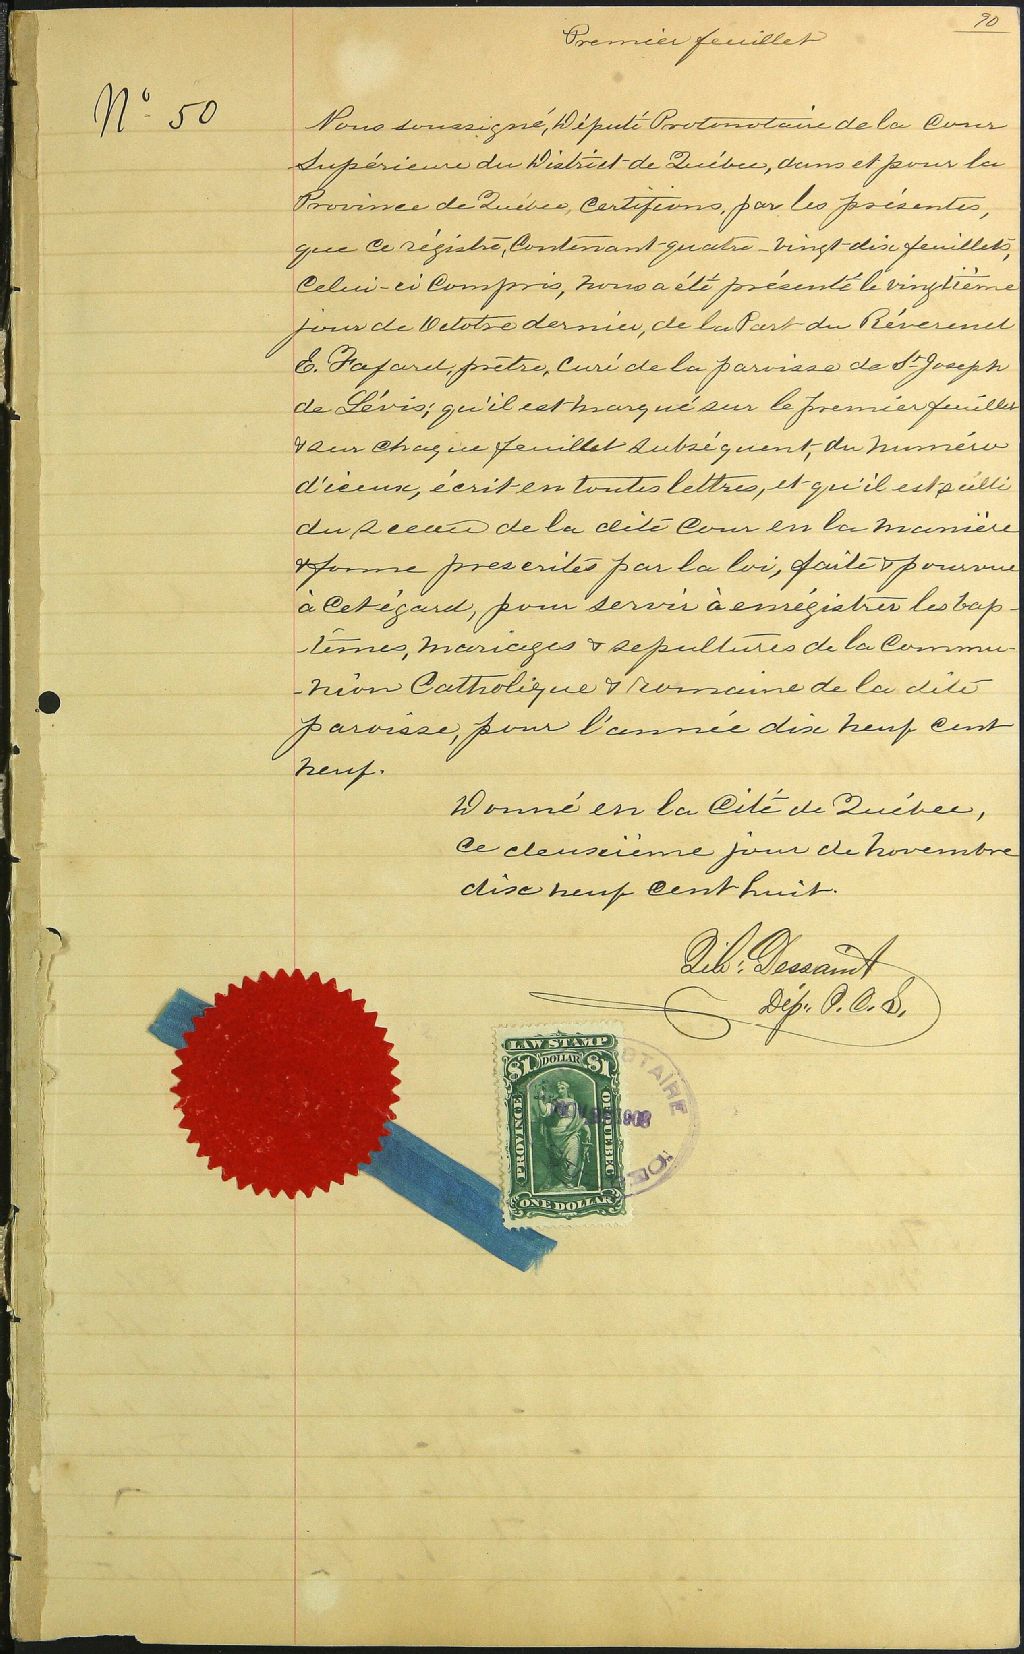 90
Premier feuillet
No 50
Nous soussigné, Député Protonotaire de la Cour
Supérieure du District de Québec, dans et pour la
Province de Québec, certifions, par les présentes,
que ce régistre, contenant quatre-vingt-dix feuillets,
celui-ci compris, nous a été présenté le vingtième
jour de Octobre dernier, de la Part du Réverend
E. Fafard, prêtre, Curé de la paroisse de St Joseph
de Lévis; qu'il est marqué sur le premier feuillet
& sur chaque feuillet subséquent, du numéro
d'iceux, écrit en toutes lettres, et qu'il est
du sceau de la dite Cour en la manière
& forme prescrites par la loi, faite & pourvue
à cet égard, pour servir à enrégistrer les bap-
-têmes, mariages & sepultures de la Commu-
-nion Catholique & romaine de la dite
paroisse, pour l'année dix neuf cent
neuf.
Donné en la Cité de Québec,
ce deuxième jour de novembre
dix neuf cent huit.
Dessaint
Dép. P. C. S.
LAW STAMP
$1 DOLLAR $1
PROVINCE OF QUEBEC
ONE DOLLAR
NOV 1908